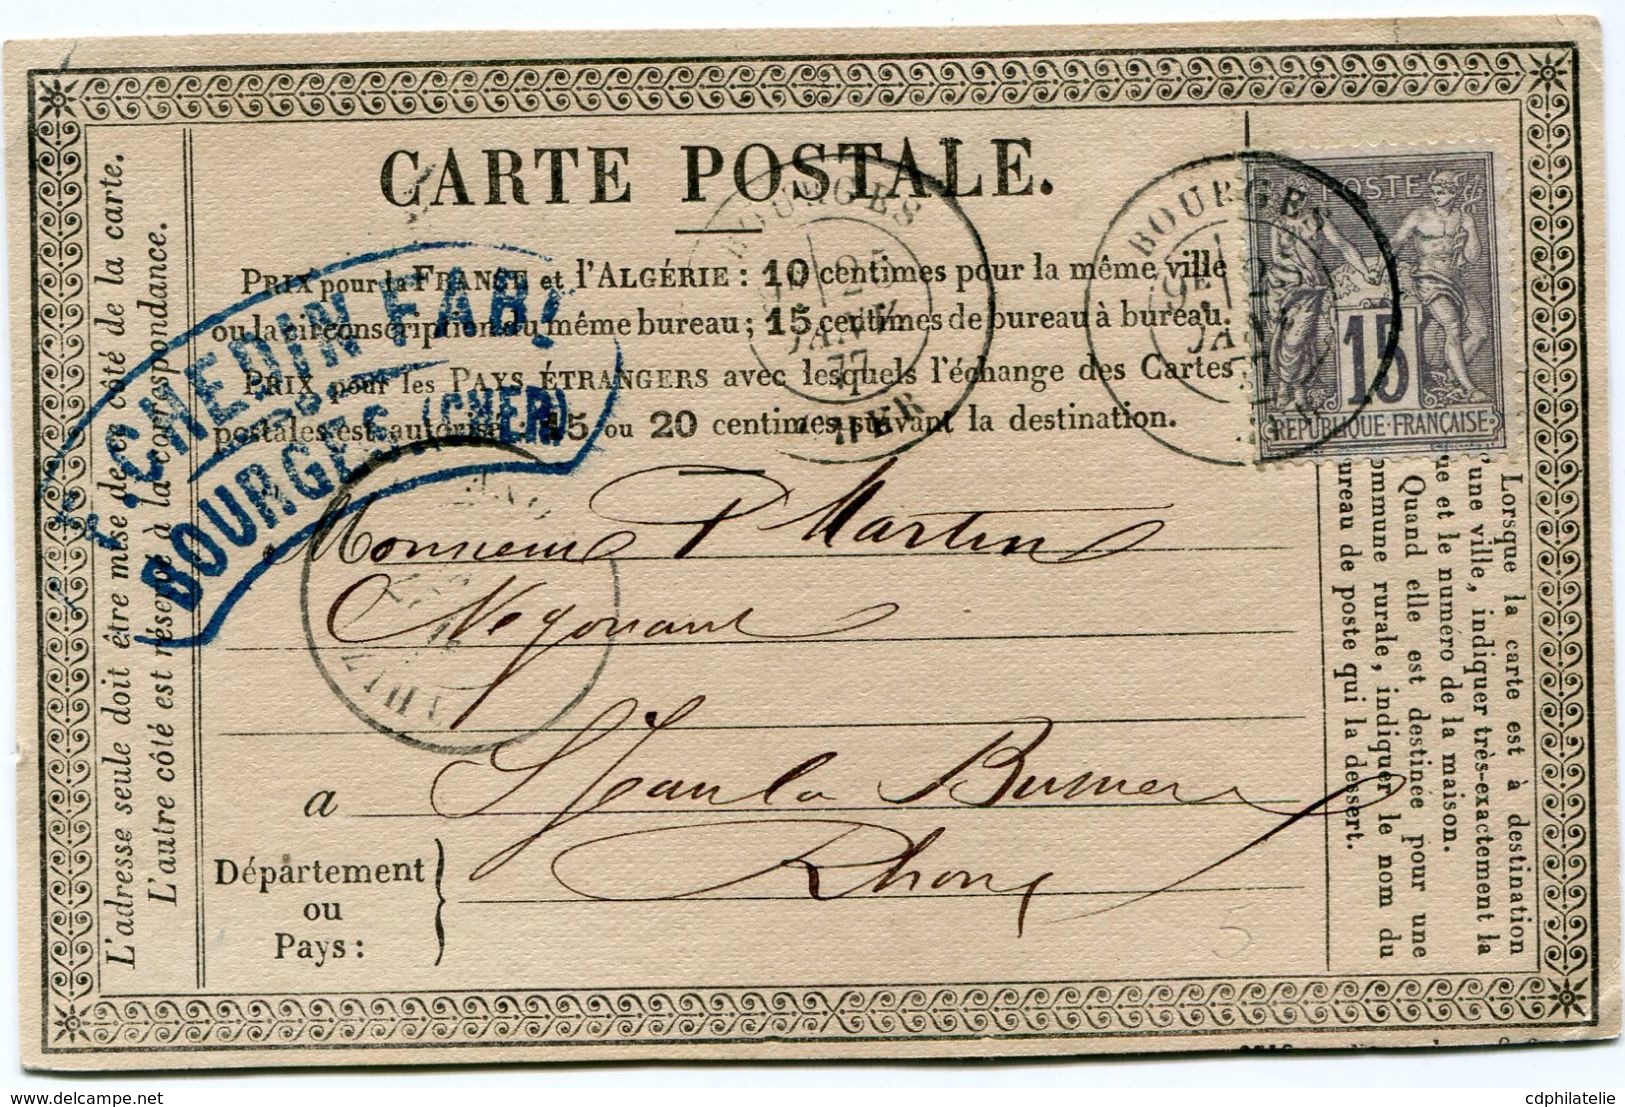 CARTE POSTALE.
PRIX pour la FRANCE et l'ALGÉRIE : 10 centimes pour la même ville
ou la circonscription du même bureau ; 15 centimes de bureau à bureau.
PRIX pour les PAYS ÉTRANGERS avec lesquels l'échange des Cartes
postales est autorisé : 15 ou 20 centimes suivant la destination.
BOURGES
25
JANV.
77
CHER
BOURGES
9E
25
JANV.
77
POSTE
15
REPUBLIQUE FRANÇAISE
CHEDIN FABT
BOURGES. (CHER)
L'adresse seule doit être mise de ce côté de la carte.
L'autre côté est réservé à la correspondance.
Monsieur P Martin
Negociant
a St Jean la Bussiere
Département
ou
Pays :
Rhone
Lorsque la carte est à destination
d'une ville, indiquer très-exactement la
rue et le numéro de la maison.
Quand elle est destinée pour une
commune rurale, indiquer le nom du
bureau de poste qui la dessert.
cdphilatelie